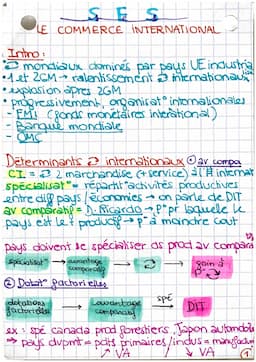 SES
LE COMMERCE INTERNATIONAL
Intro :
mondiaux dominés par pays UE industria
• 1 et 2GM → ralentissement internationaux
• explosion après 2GM
• progressivement, organisat° internationales
- FMI (fonds monétaires international)
- Banque mondiale
- OMC
Déterminants internationaux ① av compa
CI = 2 marchandise (+ service) à l'# internat
spécialisat° = répartit° activités productives
entre diff pays / économies → on parle de DIT
av comparatif = D. Ricardo → p°pr laquelle le
pays est le + productif → p° à moindre cout
pays doivent se spécialiser ds prod av compara
spécialisat° → avantage comparatif → → gain à
② Dotat° factorielles
dotations factorielles → avantage comparatif → spé DIT
ex : spé canada prod forestiers, Japon automobile
pays dvpmt = pdts primaires / indus = manufac
↓ VA ↗ VA
1